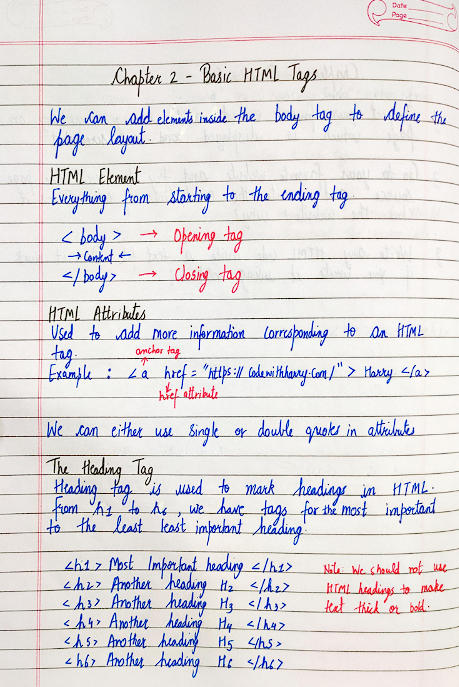 Date
Page
Chapter 2 - Basic HTML Tags
We can add elements inside the body tag to define the
page layout.
HTML Element
Everything from starting to the ending tag
< body > → Opening tag
→ Content ←
</ body> → Closing tag
HTML Attributes
Used to add more information corresponding to an HTML
tag.
anchor tag
Example : <a href = "https:// Codewithharry.com/" > Harry </a>
href attribute
We can either use single or double quotes in attributes
The Heading Tag
Heading tag is used to mark headings in HTML.
From h1 to h6, we have tags for the most important
to the least least important heading.
<h1> Most Important heading </h1>
<h2> Another heading H2 </h2>
<h3> Another heading H3 </h3>
<h4> Another heading H4 </h4>
<h5> Another heading H5 </h5>
<h6> Another heading H6 </h6>
Note: We should not use
HTML headings to make
text thick or bold.